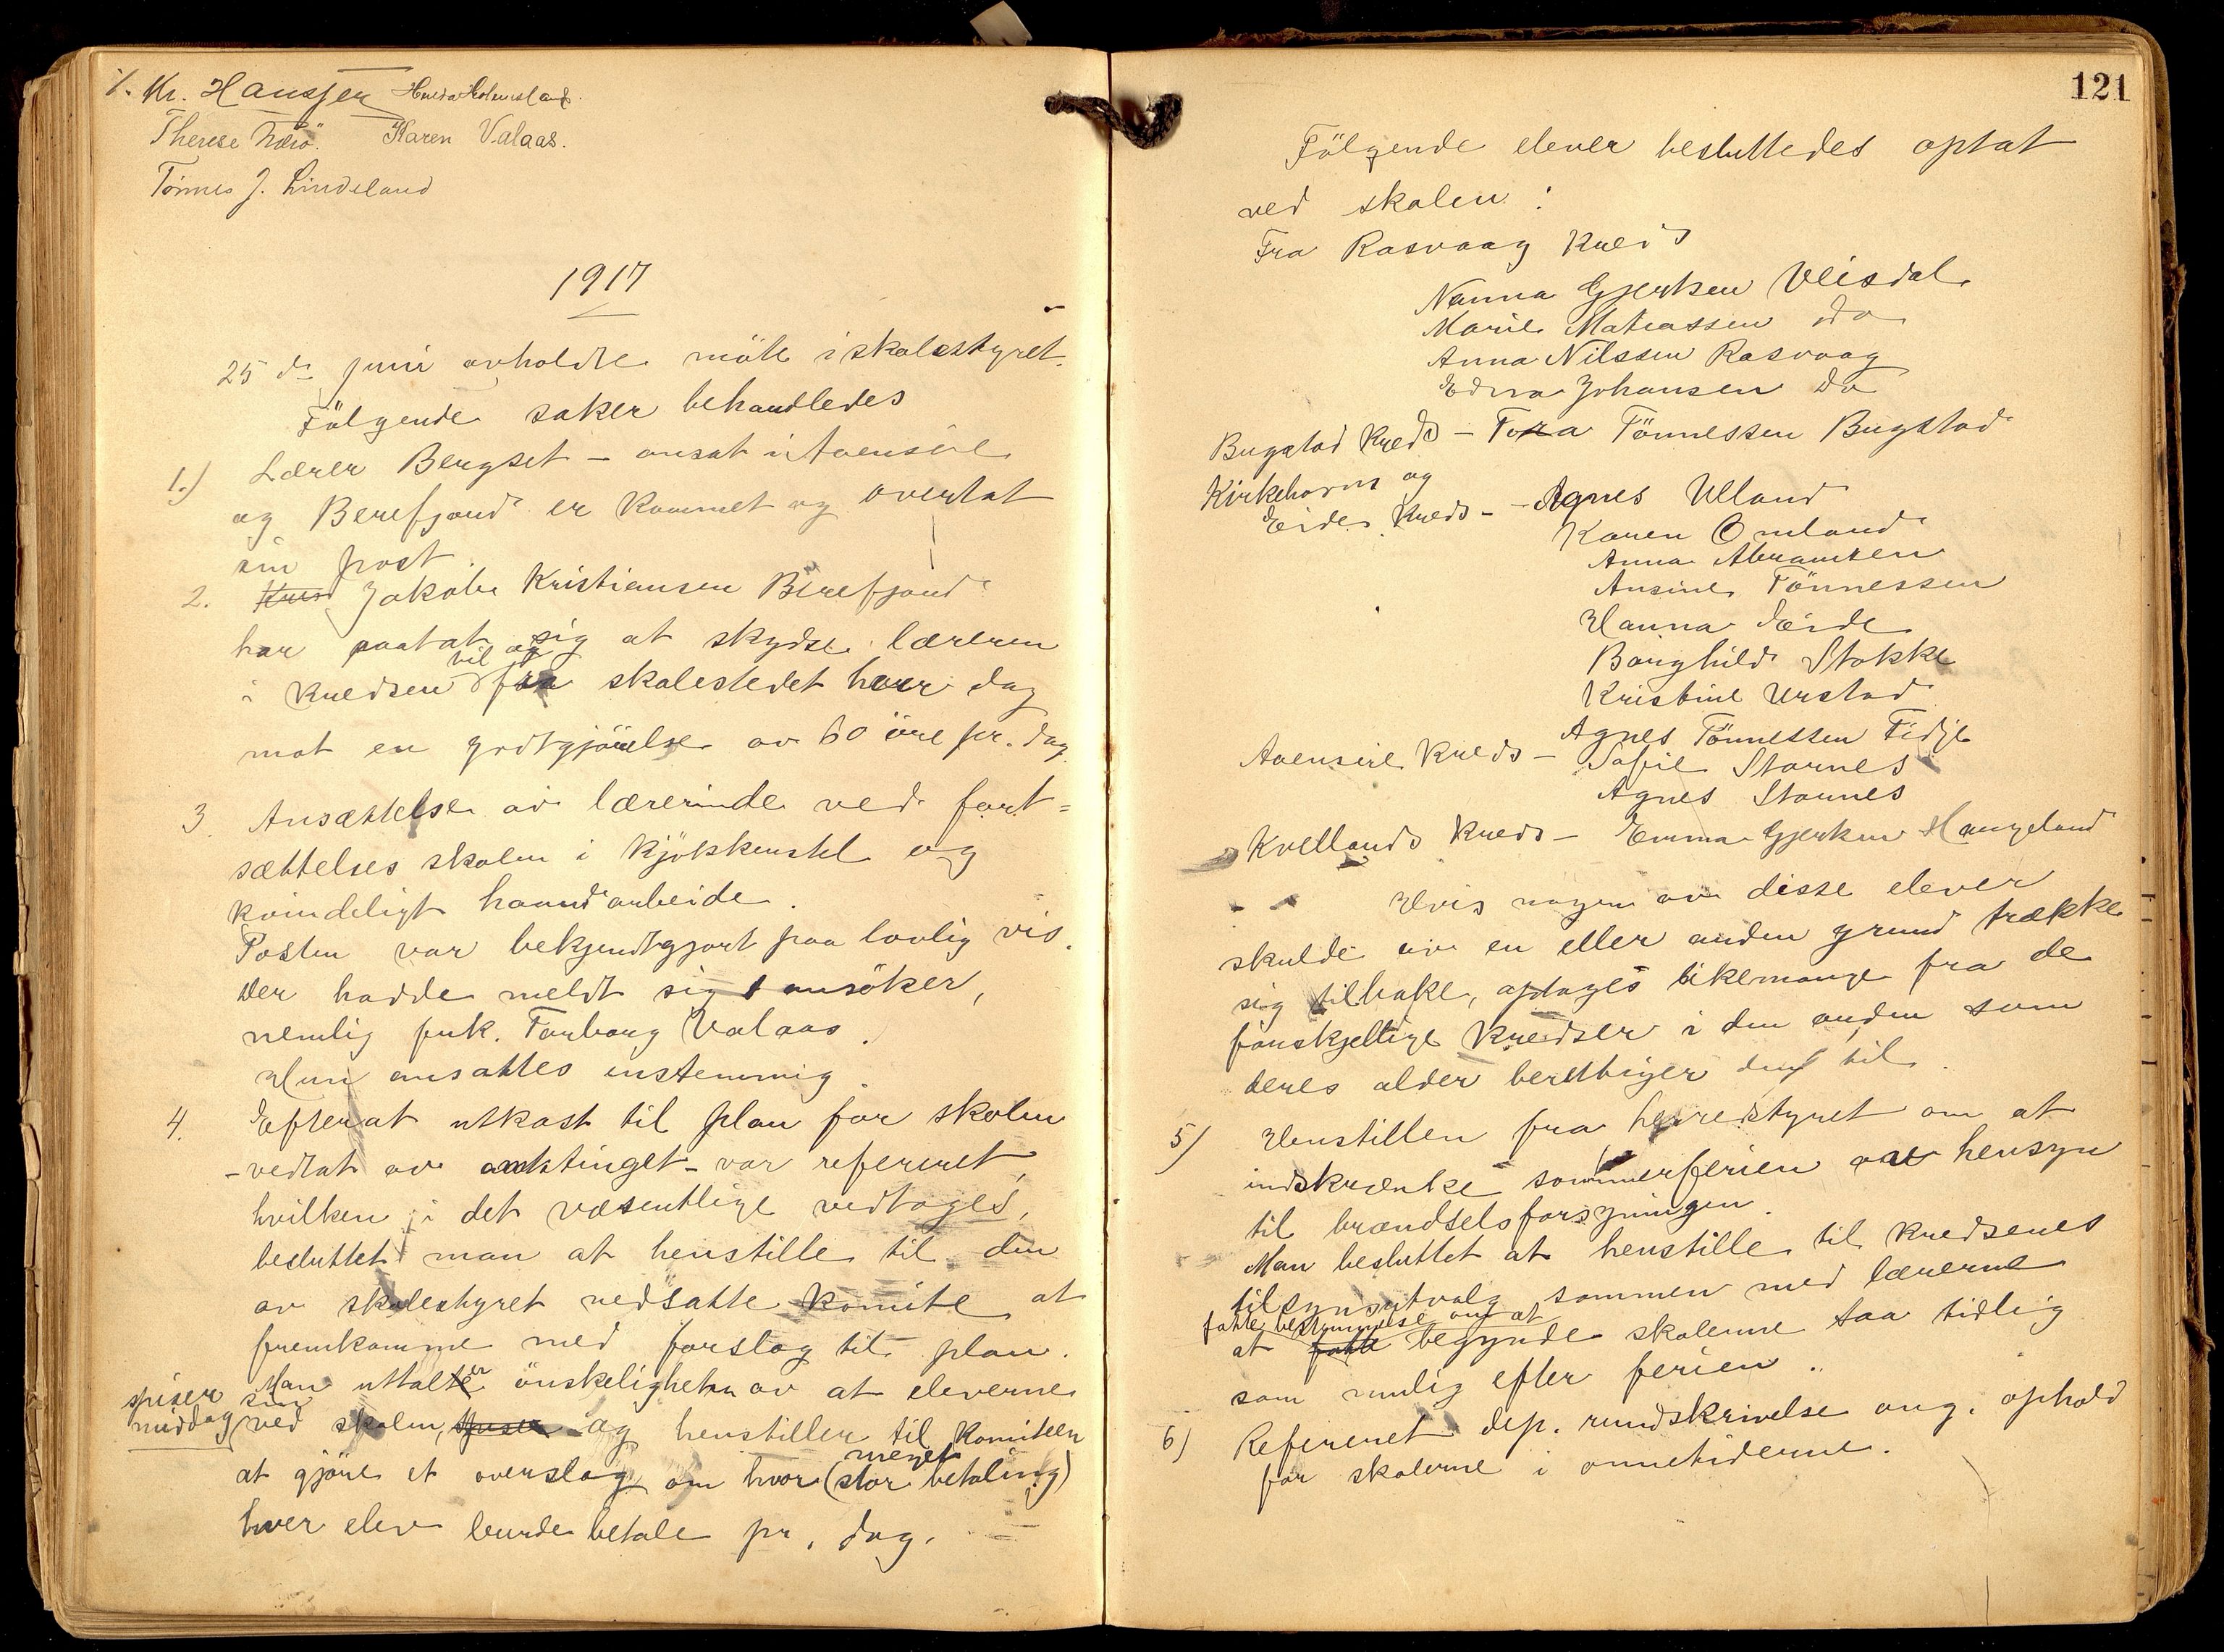 Kr. Hanssen
Therese Karen Valaas.
Tönnes J. Lindeland
1917
25 de juni avholdte möte i skolestyret.
Fölgende saker behandledes
1.) Lærer Bergset - ansat i Avensire
og Berefjord er kommet og overtat
sin post.
2. Jakob Kristiansen Berefjord
har paatat sig at skydse læreren
i kredsen til og fra skolestedet hver dag
mot en godtgjörelse av 60 öre pr. dag.
3. Ansættelse av lærerinde ved fort=
sættelses skolen i kjökkenstel og
kvindeligt haandarbeide.
Posten var bekjendtgjort paa lovlig vis.
Der hadde meldt sig 1 ansöker,
nemlig frk. Torborg Valaas.
Hun ansattes enstemmig.
4. Efterat utkast til plan for skolen
- vedtat av amtstinget - var refereret,
hvilken i det væsentlige vedtoges,
besluttet man at henstille til den
av skolestyret nedsatte komite at
fremkomme med forslag til plan.
Man uttaler önskeligheten av at eleverne
spiser sin middag ved skolen, og henstiller til komiteen
at gjöre et overslag om hvor meget (stor betaling)
hver elev burde betale pr. dag.
121
Fölgende elever besluttedes optat
ved skolen:
Fra Rasvaag kreds
Nanna Gjertsen Veisdal
Marie Matiassen do
Anna Nilssen Rasvaag
Edna Johansen do
Bugstad kreds - Tora Tönnessen Bugstad
Kirkehavns og
Eides kreds - Agnes Ulland
Karen Omland
Anna Abramsen
Ansine Tönnessen
Hanna Eide
Borghild Stokke
Kristine Urstad
Agnes Tönnessen Fidje
Avensire kreds - Sofie Stornes
Agnes Stornes
Kvellands kreds - Emma Gjertsen Haugeland
Hvis nogen av disse elever
skulde av en eller anden grund trække
sig tilbake, optages likemange fra de
forskjellige kredser i den orden som
deres alder berettiger dem til.
5) Henstillen fra herredstyret om at
indskrænke sommerferien av hensyn
til brændselsforsyningen.
Man besluttet at henstille til kredsenes
tilsynsutvalg sammen med lærerne
fatte bestemmelse om at
at fatte begynde skolerne saa tidlig
som mulig efter ferien.
6) Refereret dep. rundskrivelse ang. ophold
for skolerne i onnetiderne.